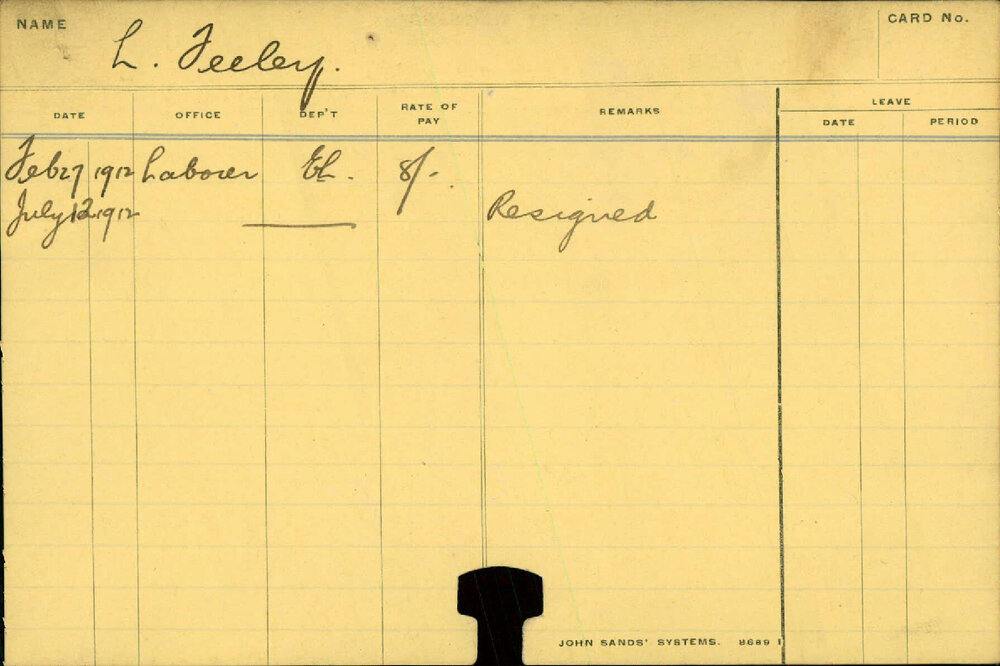 NAME L. Feeley. CARD No.
DATE OFFICE DEP'T RATE OF PAY REMARKS LEAVE
DATE PERIOD
Feb 27 1912 Laborer EL. 8/-.
July 12 1912 —— Resigned
JOHN SANDS' SYSTEMS. 8689 1